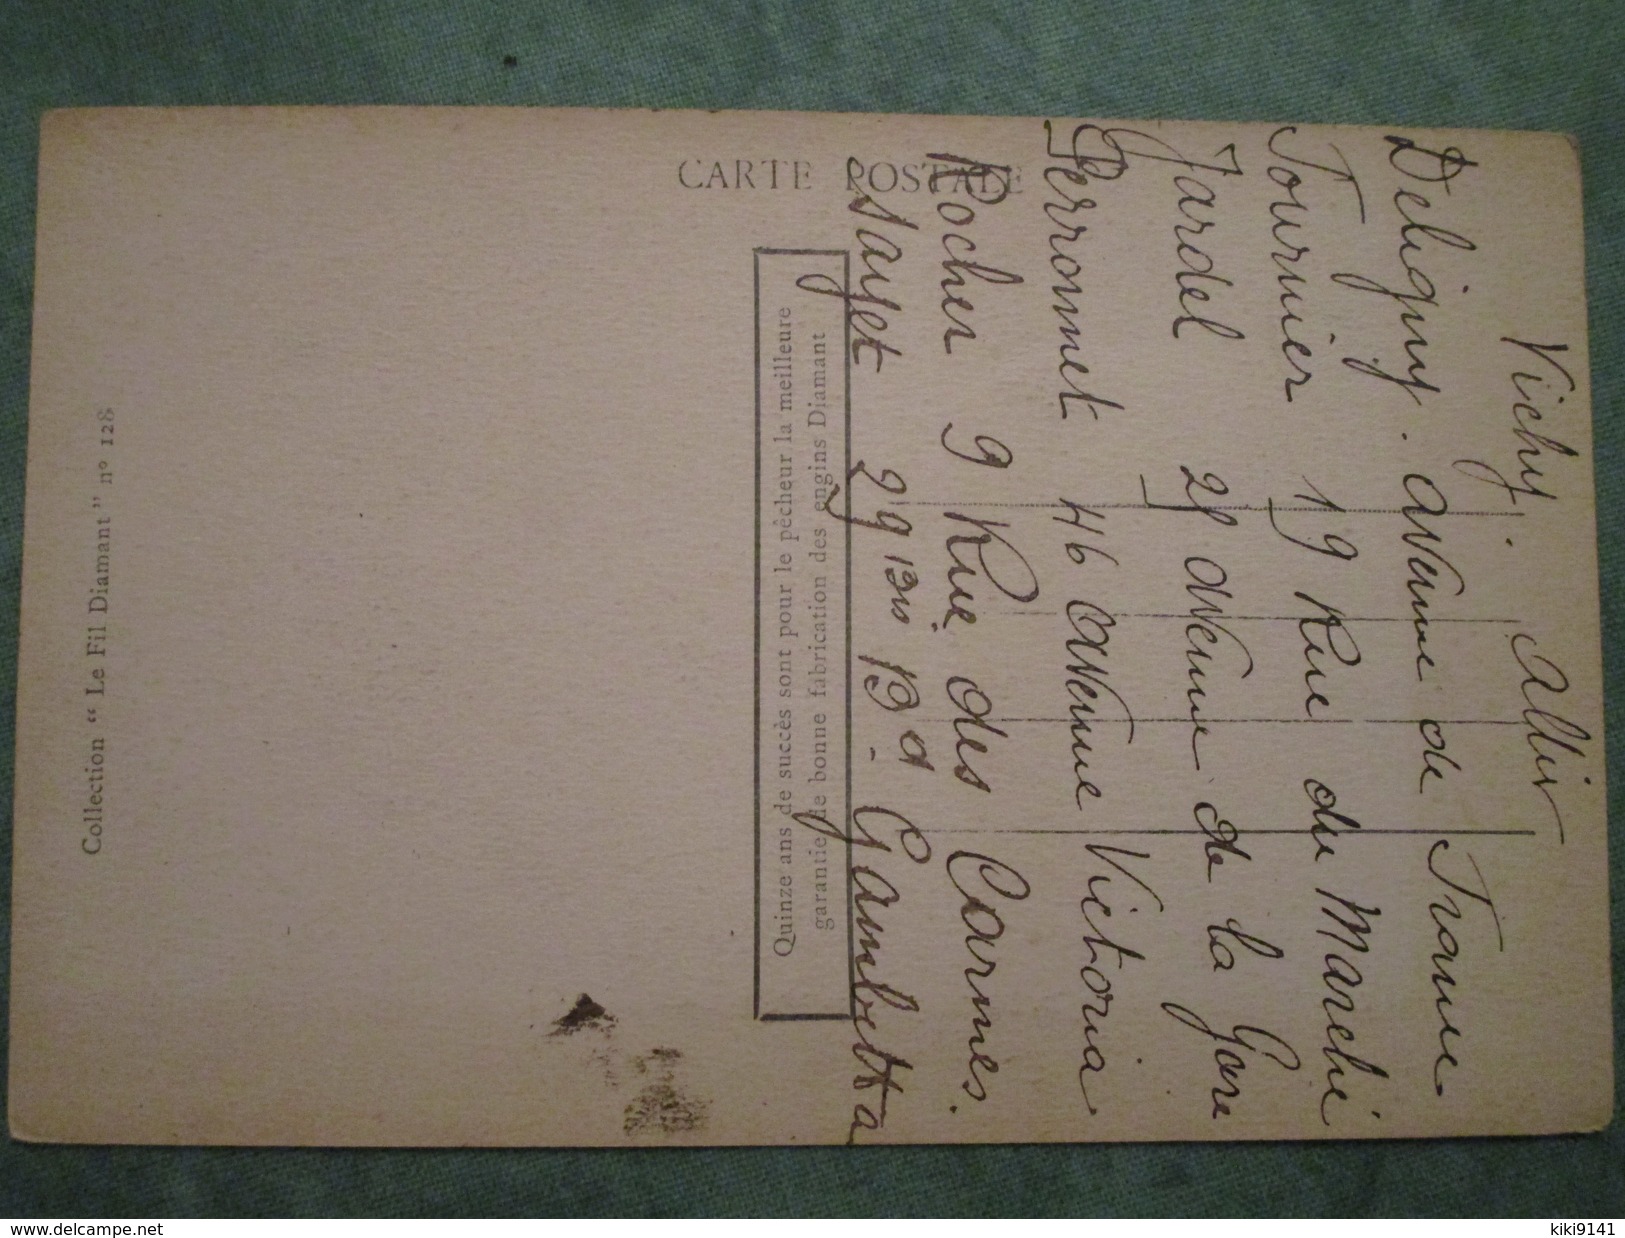 CARTE POSTALE
Collection “ Le Fil Diamant ” nº 128
Quinze ans de succès sont pour le pêcheur la meilleure
garantie de bonne fabrication des engins Diamant
Vichy. Allier
Deligny. avenue de
Tournier 19 Rue du Marché
Jardel avenue de la Gare
Perronnet 46 avenue Victoria
Rocher 9 Rue des Carmes.
Sayet 29 Bd Gambetta
www.delcampe.net
kiki9141